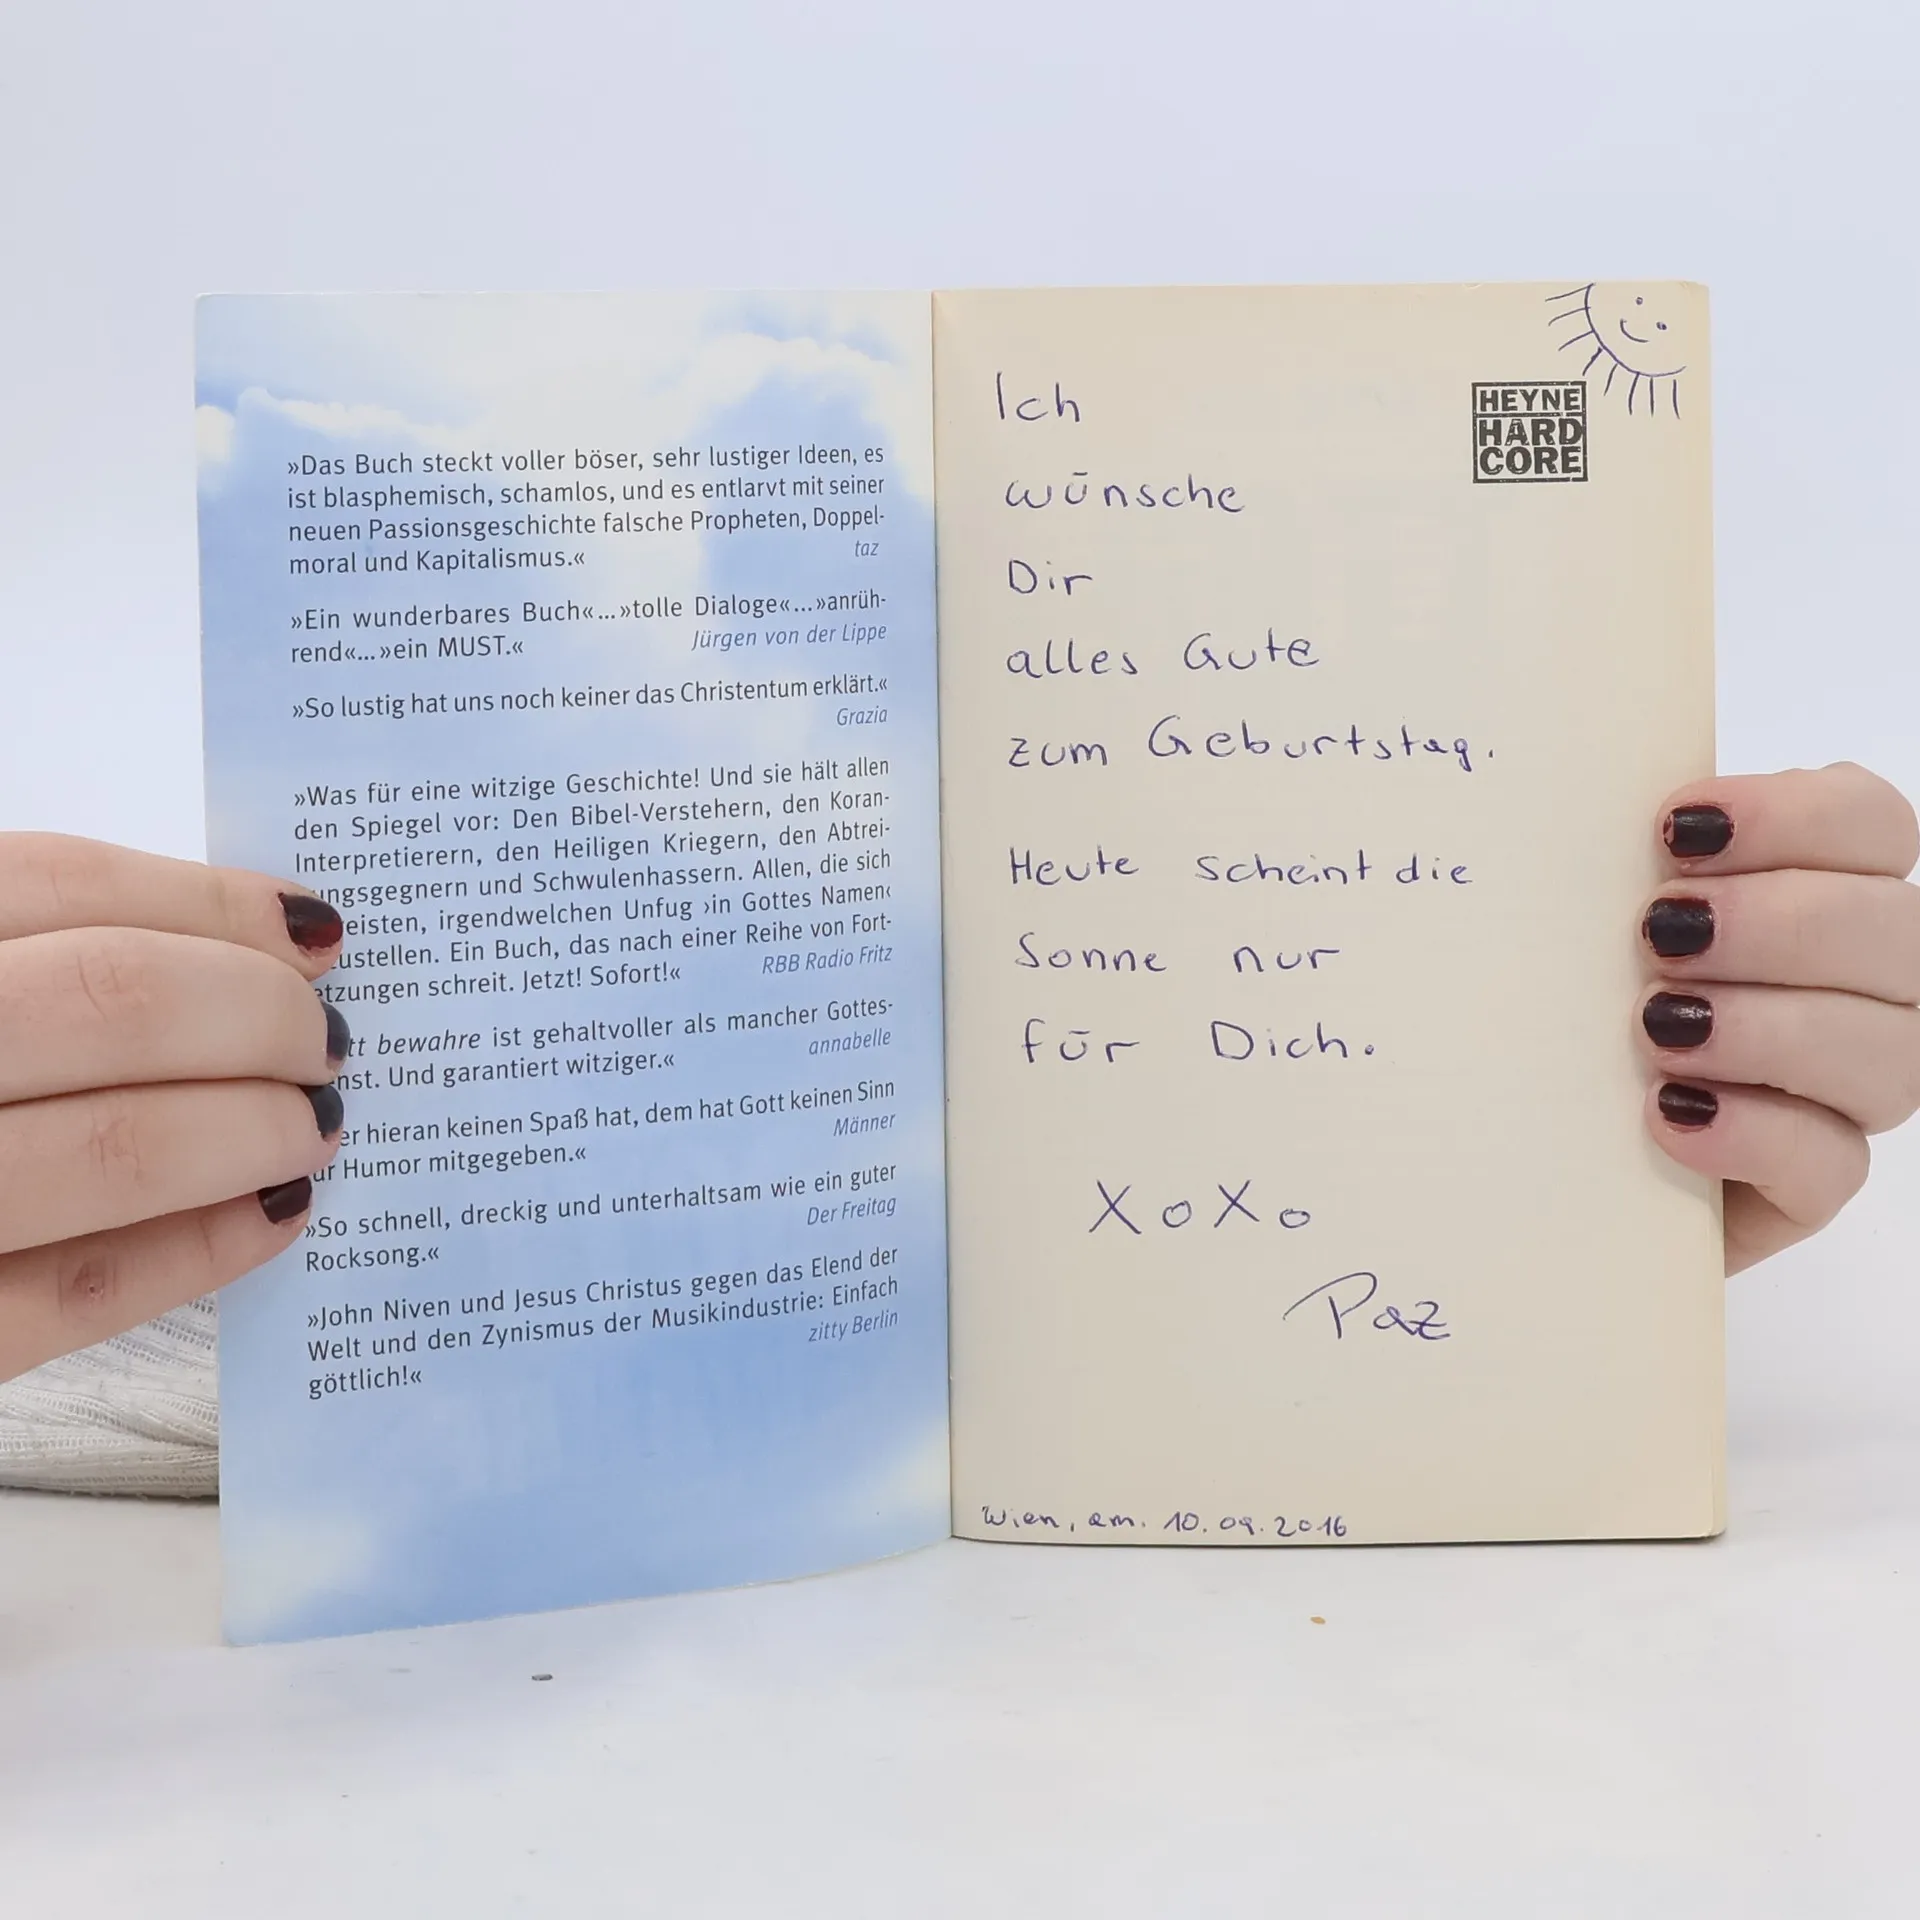 »Das Buch steckt voller böser, sehr lustiger Ideen, es
ist blasphemisch, schamlos, und es entlarvt mit seiner
neuen Passionsgeschichte falsche Propheten, Doppel-
moral und Kapitalismus.«
taz
»Ein wunderbares Buch«...»tolle Dialoge«...»anrüh-
rend«...»ein MUST.«
Jürgen von der Lippe
»So lustig hat uns noch keiner das Christentum erklärt.«
Grazia
»Was für eine witzige Geschichte! Und sie hält allen
den Spiegel vor: Den Bibel-Verstehern, den Koran-
Interpretierern, den Heiligen Kriegern, den Abtrei-
ngsgegnern und Schwulenhassern. Allen, die sich
eisten, irgendwelchen Unfug ›in Gottes Namen‹
ustellen. Ein Buch, das nach einer Reihe von Fort-
etzungen schreit. Jetzt! Sofort!«
RBB Radio Fritz
tt bewahre ist gehaltvoller als mancher Gottes-
nst. Und garantiert witziger.«
annabelle
er hieran keinen Spaß hat, dem hat Gott keinen Sinn
ür Humor mitgegeben.«
Männer
»So schnell, dreckig und unterhaltsam wie ein guter
Rocksong.«
Der Freitag
»John Niven und Jesus Christus gegen das Elend der
Welt und den Zynismus der Musikindustrie: Einfach
göttlich!«
zitty Berlin
HEYNE
HARD
CORE
Ich
wünsche
Dir
alles Gute
zum Geburtstag.
Heute scheint die
Sonne nur
für Dich.
XoXo
Paz
Wien, am. 10.09.2016